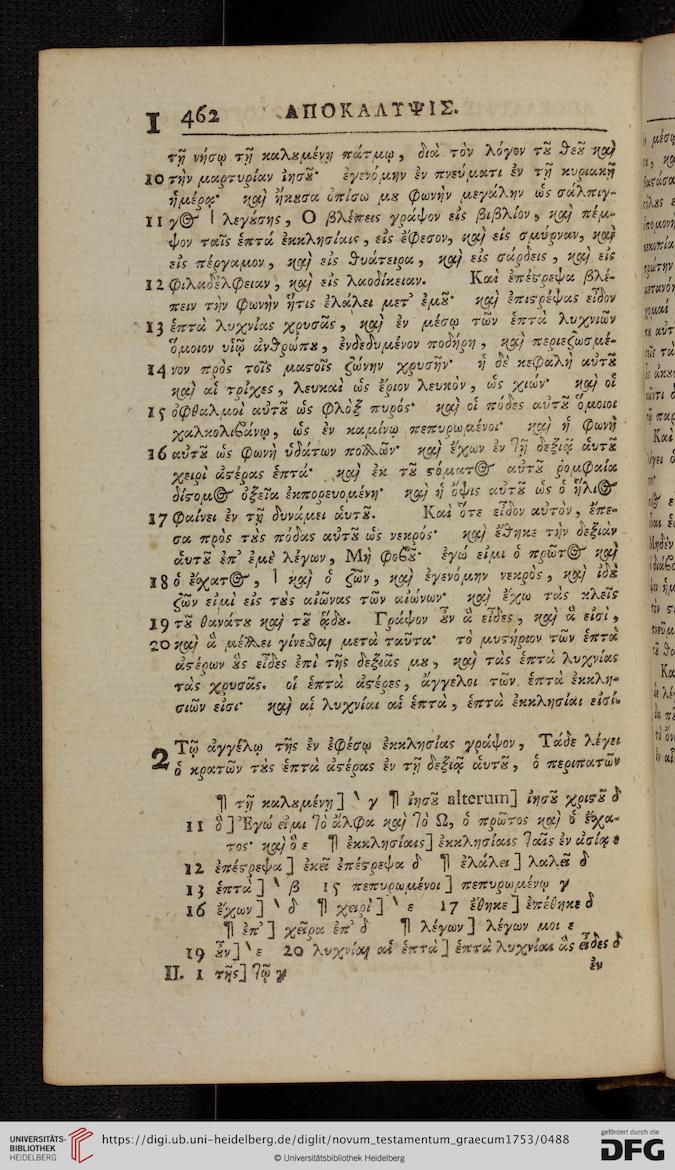 I 462 ΑΠΟΚΑΛΥΨΙΣ.
τῇ νήσῳ τῇ καλȣμένῃ πάτμῳ, διὰ τὸν λόγον τȣ̃ θεȣ̃ καὶ
10 τὴν μαρτυρίαν ἰησȣ̃· ἐγενόμην ἐν πνεύματι ἐν τῇ κυριακῇ
ἡμέρᾳ· καὶ ἤκȣσα ὀπίσω μȣ φωνὴν μεγάλην ὡς σάλπιγ-
11 γος | λεγȣ́σης, Ὃ βλέπεις γράψον εἰς βιβλίον, καὶ πέμ-
ψον ταῖς ἑπτά ἐκκλησίαις, εἰς ἔφεσον, καὶ εἰς σμύρναν, καὶ
εἰς πέργαμον, καὶ εἰς θυάτειρα, καὶ εἰς σάρδεις, καὶ εἰς
12 φιλαδέλφειαν, καὶ εἰς λαοδίκειαν. Καὶ ἐπέϛρεψα βλέ-
πειν τὴν φωνὴν ἥτις ἐλάλει μετ' ἐμȣ̃· καὶ ἐπιϛρέψας εἶδον
13 ἑπτὰ λυχνίας χρυσᾶς, καὶ ἐν μέσῳ τῶν ἑπτὰ λυχνιῶν
ὅμοιον υἱῷ ἀνθρώπȣ, ἐνδεδυμένον ποδήρη, καὶ περιεζωσμέ-
14 νον πρὸς τοῖς μαϛοῖς ζώνην χρυσῆν· ἡ δὲ κεφαλὴ αὐτȣ̃
καὶ αἱ τρίχες, λευκαὶ ὡς ἔριον λευκὸν, ὡς χιών· καὶ οἱ
15 ὀφθαλμοὶ αὐτȣ̃ ὡς φλὸξ πυρός· καὶ οἱ πόδες αὐτȣ̃ ὅμοιοι
χαλκολιβάνῳ, ὡς ἐν καμίνῳ πεπυρωμένοι· καὶ ἡ φωνὴ
16 αὐτȣ̃ ὡς φωνὴ ὑδάτων πολλῶν· καὶ ἔχων ἐν τῇ δεξιᾷ ἁυτȣ̃
χειρὶ ἀϛέρας ἑπτά· καὶ ἐκ τȣ̃ ϛόματος αὐτȣ̃ ῥομφαία
δίϛομος ὀξεῖα ἐκπορευομένη· καὶ ἡ ὄψις αὐτȣ̃ ὡς ὁ ἥλιος
17 φαίνει ἐν τῇ δυνάμει ἁυτȣ̃. Καὶ ὅτε εἶδον αὐτὸν, ἔπε-
σα πρὸς τȣ̀ς πόδας αὐτȣ̃ ὡς νεκρός· καὶ ἔθηκε τὴν δεξιὰν
ἁυτȣ̃ ἐπ' ἐμὲ λέγων, Μὴ φοβȣ̃· ἐγώ εἰμι ὁ πρῶτος καὶ
18 ὁ ἔχατος, | καὶ ὁ ζῶν, καὶ ἐγενόμην νεκρὸς, καὶ ἰδȣ̀
ζῶν εἰμὶ εἰς τȣ̀ς αἰῶνας τῶν αἰώνων· καὶ ἔχω τὰς κλεῖς
19 τȣ̃ θανάτȣ καὶ τȣ̃ ᾅδȣ. Γράψον ȣ̓̃ν ἃ εἶδες, καὶ ἅ εἰσὶ,
20 καὶ ἃ μέλλει γίνεσθαι μετὰ ταῦτα· τὸ μυϛήριον τῶν ἑπτὰ
ἀϛέρων ȣ̔̀ς εἶδες ἐπὶ τῆς δεξιᾶς μȣ, καὶ τὰς ἑπτὰ λυχνίας
τὰς χρυσᾶς. οἱ ἑπτὰ ἀϛέρες, ἄγγελοι τῶν ἑπτὰ ἐκκλη-
σιῶν εἰσι· καὶ αἱ λυχνίαι αἱ ἑπτὰ, ἑπτὰ ἐκκλησίαι εἰσίν
2 Τῷ ἀγγέλῳ τῆς ἐν ἐφέσῳ ἐκκλησίας γράψον, Τάδε λέγει
ὁ κρατῶν τȣ̀ς ἑπτὰ ἀϛέρας ἐν τῇ δεξιᾷ ἁυτȣ̃, ὁ περιπατῶν
¶ τῇ καλȣμένῃ] ‵ γ ¶ ἰησȣ̃ alterum] ἰησȣ̃ χριϛȣ̃ δ
11 ὃ] Ἐγώ εἰμι τὸ ἄλφα καὶ τὸ Ω, ὁ πρῶτος καὶ ὁ ἔχα-
τος· καὶ ὃ ε ¶ ἐκκλησίαις] ἐκκλησίαις ταῖς ἐν ἀσίᾳ ε
12 ἐπέϛρεψα] ἐκεῖ ἐπέϛρεψα δ ¶ ἐλάλει] λαλεῖ δ
13 ἑπτὰ] ‵ β 15 πεπυρωμένοι] πεπυρωμένῳ γ
16 ἔχων] ‵ δ ¶ χειρὶ] ‵ ε 17 ἔθηκε] ἐπέθηκε δ
¶ ἐπ'] χεῖρα ἐπ' δ ¶ λέγων] λέγων μοι ε
19 ȣ̓̃ν] ‵ ε 20 λυχνίαι αἱ ἑπτὰ] ἑπτὰ λυχνίαι ἃς εἶδες δ
II. 1 τῆς] τῷ γ
ἐν
UNIVERSITÄTS-
BIBLIOTHEK
HEIDELBERG
https://digi.ub.uni-heidelberg.de/diglit/novum_testamentum_graecum1753/0488
© Universitätsbibliothek Heidelberg
gefördert durch die
DFG